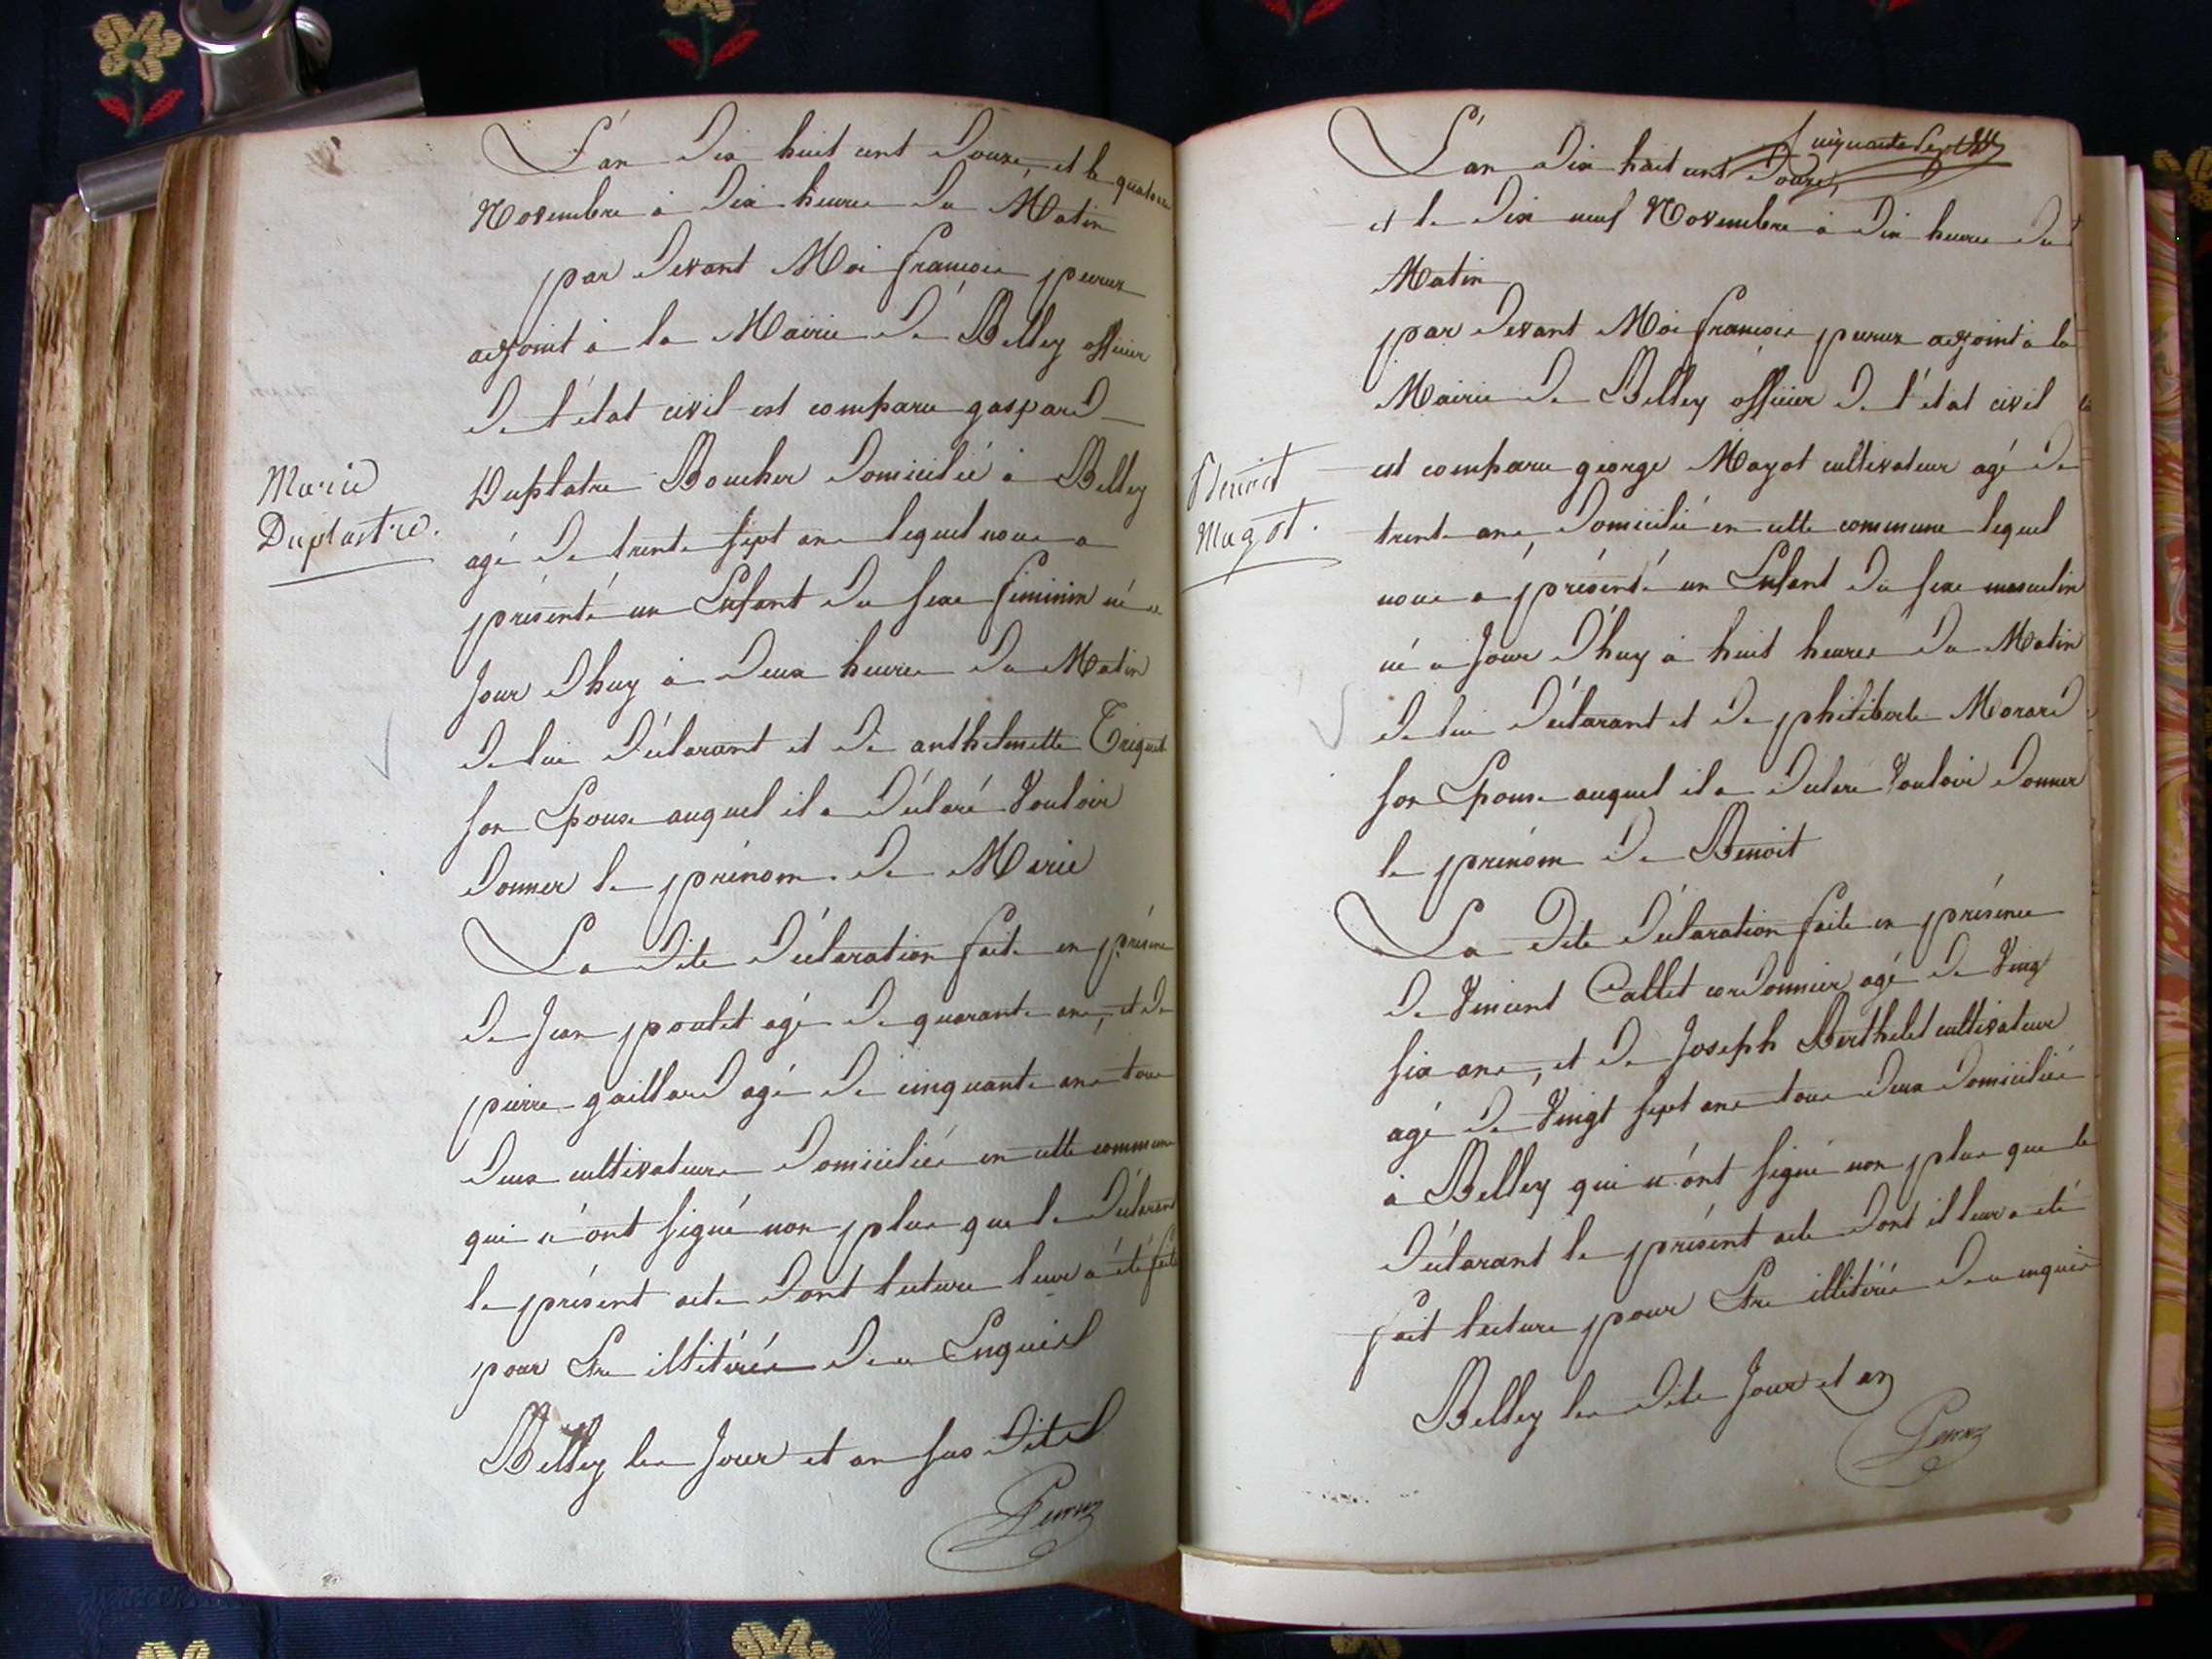 L'an dix huit cent douze, et le quatorze
Novembre à dix heures du Matin
par devant Moi françois peruz
adjoint à la Mairie de Belley officier
de l'état civil est comparu gaspard
Marie
Duplastre.
Duplatre Boucher domicilié à Belley
agé de trente sept ans lequel nous a
présenté un Enfant du sexe féminin né ce
Jour dhuy à deux heures du Matin
de lui déclarant et de anthelmette Triquet
son Epouse auquel il a déclaré Vouloir
donner le prénom de Marie
La dite déclaration faite en présence
de Jean poulet agé de quarante ans, et de
pierre gaillard agé de cinquante ans tous
deux cultivateurs domiciliés en cette commune
qui n'ont signé non plus que le déclarant
le présent acte dont lecture leur a été faite
pour Etre illitérés de ce Enquis
Belley les Jour et an sus dits
Peruz
cinquante sept
L'an dix huit cent douze,
et le dix neuf Novembre à dix heures du
Matin
par devant Moi françois peruz adjoint à la
Mairie de Belley officier de l'état civil
Benoit
Magot.
est comparu george Magot cultivateur agé de
trente ans, domicilié en cette commune lequel
nous a présenté un Enfant du sexe masculin
né ce Jour d'huy à huit heures du Matin
de lui déclarant et de philiberte Morard
son Epouse auquel il a déclaré Vouloir donner
le prénom de Benoit
La dite déclaration faite en présence
de Vincent Callet cordonnier agé de Vingt
six ans, et de Joseph Berthelet cultivateur
agé de Vingt sept ans tous deux domiciliés
à Belley qui n'ont signé non plus que le
déclarant le présent acte dont il leur a été
fait lecture pour Etre illitérés de ce enquis
Belley les dits Jour et an
Peruz